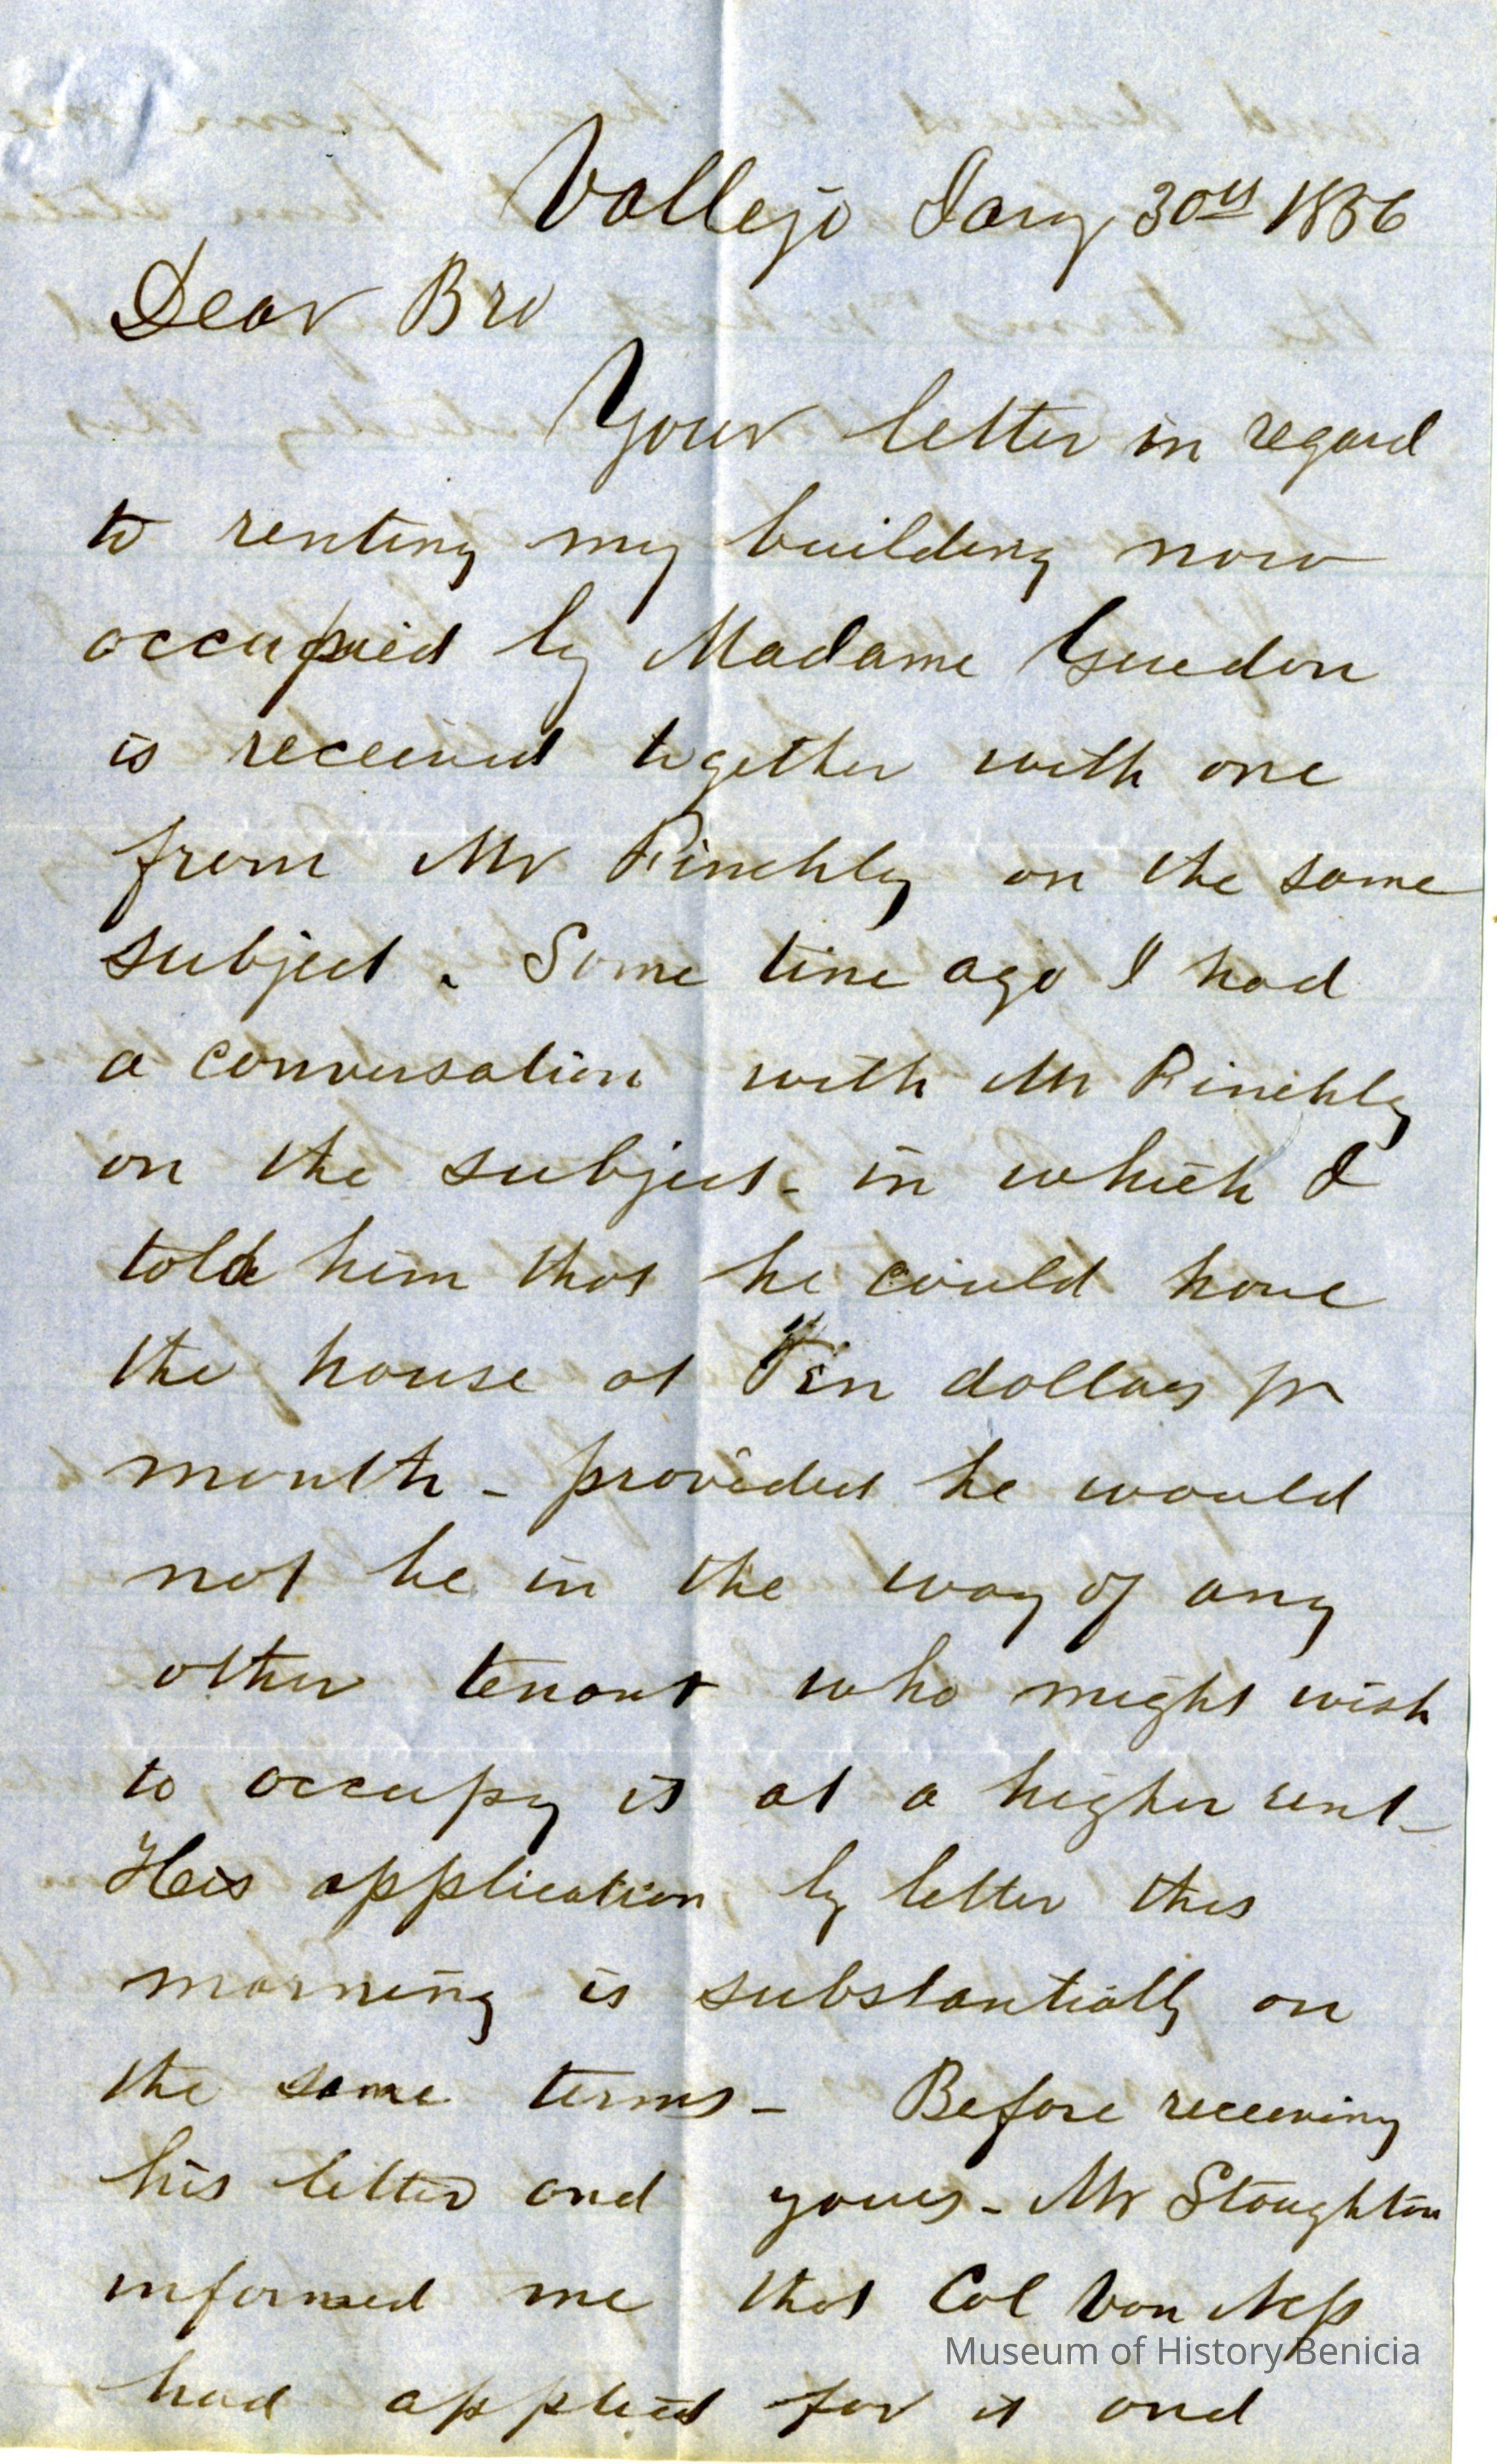 Vallejo Jany 30th 1856
Dear Bro
Your letter in regard
to renting my building now
occupied by Madame Guedon
is received together with one
from Mr Finchly on the same
subject. Some time ago I had
a conversation with Mr Finchly
on the subject - in which I
told him that he could have
the house at Ten dollars pr
month - provided he would
not be in the way of any
other tenant who might wish
to occupy it at a higher rent -
His application by letter this
morning is substantially on
the same terms - Before receiving
his letter and yours - Mr Stoughton
informed me that Col Van Ness
had applied for it and
Museum of History Benicia